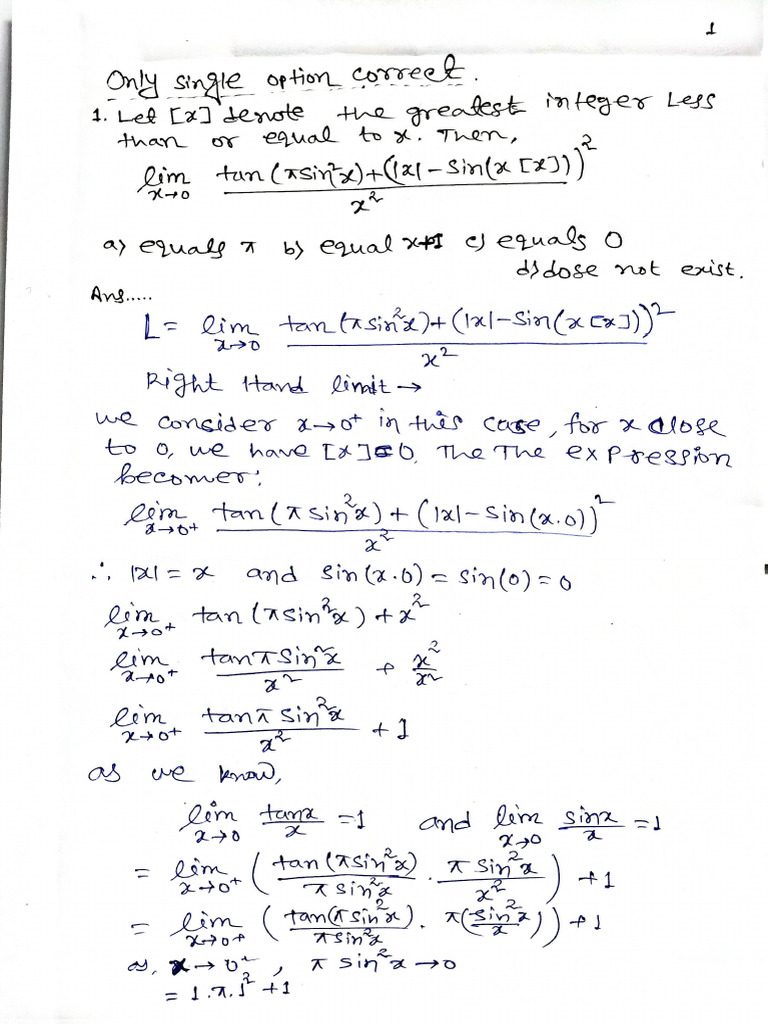 1
Only single option correct.
1. Let [x] denote the greatest integer Less
than or equal to x. Then,
lim x→0 (tan(π sin²x)+(|x|-Sin(x[x]))²)/x²
a) equals π b) equal π+1 c) equals 0
d) dose not exist.
Ans.....
L = lim x→0 (tan(π sin²x)+(|x|-Sin(x[x]))²)/x²
Right Hand limit →
we consider x→0⁺ in this case, for x close
to 0, we have [x]=0. The The expression
becomes:
lim x→0⁺ (tan(π sin²x)+(|x|-Sin(x.0))²)/x²
∴ |x| = x and sin(x.0) = sin(0) = 0
lim x→0⁺ tan(π sin²x)+x²
lim x→0⁺ (tan π Sin²x)/x² + x²/x²
lim x→0⁺ (tan π sin²x)/x² + 1
as we know,
lim x→0 tanx/x =1 and lim x→0 sinx/x =1
= lim x→0⁺ (tan(π sin²x)/(π sin²x) . (π sin²x)/x²) +1
= lim x→0⁺ (tan(π sin²x)/(π sin²x) . π(sin²x/x)) +1
as, x→0⁺, π sin²x→0
= 1.π.1² +1